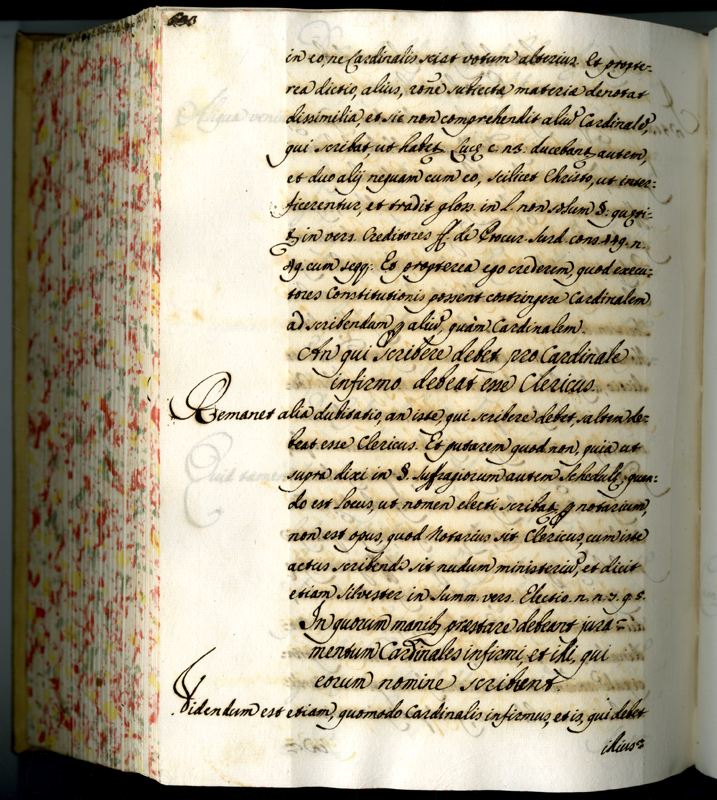 in eo, ne Cardinalis sciat votum alterius. Et propte-
rea dictio, alius, rõne sublecta materia denotat
dissimilia, et sic non comprehendit aliũ Cardinalẽ,
qui scribat, ut habet Luce c. 23. ducebant autem,
et duo alij nequam cum eo, scilicet Christo, ut inter-
ficerentur, et tradit gloss. in l. non solum §.
in vers. Creditores ff. de Procur. Surd. cons. 449. n.
49. cum seqq: Et propterea ego crederem, quod execu-
tores Constitutionis possent costringere Cardinalem
ad scribendum p aliũ, quàm Cardinalem.
An qui scribere debet pro Cardinale
infirmo debeat esse Clericus.
Remanet alia dubitatio, an iste, qui scribere debet, saltem de-
beat esse Clericus. Et putarem quod non, quia ut
supra dixi in §. Suffragiorum autem Schedule, quan-
do est locus, ut nomen electi scribat p notarium,
non est opus, quod Notarius sit Clericus, cum iste
actus scribendi sit nudum ministeriũ, et dicit
etiam Silvester in Summ. vers. Electio. n.
In quorum manib; præstare debeant jura-
mentum Cardinales infirmi et illi, qui
eorum nomine scribent.
Videndum est etiam, quomodo Cardinalis infirmus, et is, qui debet
illius